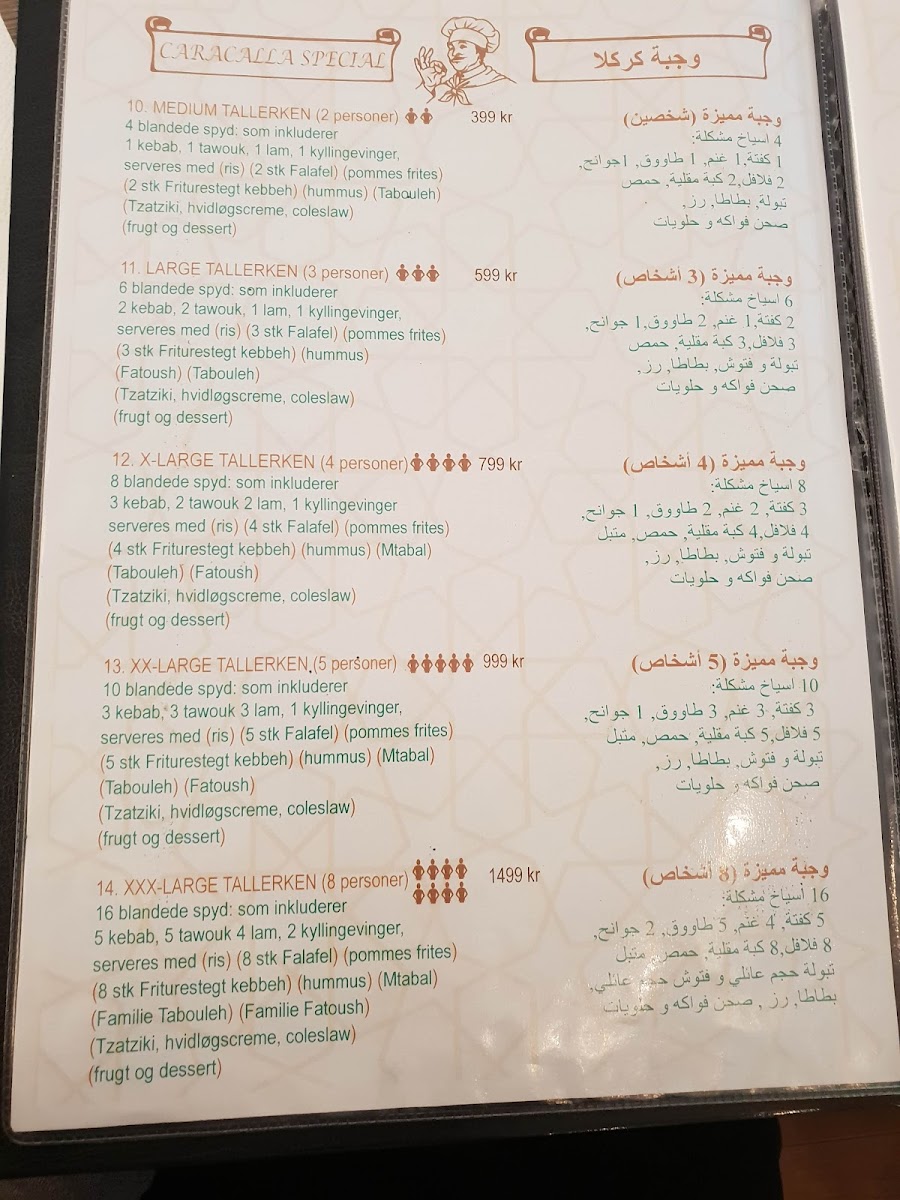 CARACALLA SPECIAL
وجبة كركلا
10. MEDIUM TALLERKEN (2 personer) 399 kr
4 blandede spyd: som inkluderer
1 kebab, 1 tawouk, 1 lam, 1 kyllingevinger,
serveres med (ris) (2 stk Falafel) (pommes frites)
(2 stk Friturestegt kebbeh) (hummus) (Tabouleh)
(Tzatziki, hvidløgscreme, coleslaw)
(frugt og dessert)
وجبة مميزة (شخصين)
4 اسياخ مشكلة:
1 كفتة,1 غنم, 1 طاووق, 1جوانح,
2 فلافل,2 كبة مقلية, حمص
تبولة, بطاطا, رز,
صحن فواكه و حلويات
11. LARGE TALLERKEN (3 personer) 599 kr
6 blandede spyd: som inkluderer
2 kebab, 2 tawouk, 1 lam, 1 kyllingevinger,
serveres med (ris) (3 stk Falafel) (pommes frites)
(3 stk Friturestegt kebbeh) (hummus)
(Fatoush) (Tabouleh)
(Tzatziki, hvidløgscreme, coleslaw)
(frugt og dessert)
وجبة مميزة (3 أشخاص)
6 اسياخ مشكلة:
2 كفتة,1 غنم, 2 طاووق,1 جوانح,
3 فلافل,3 كبة مقلية, حمص
تبولة و فتوش, بطاطا, رز,
صحن فواكه و حلويات
12. X-LARGE TALLERKEN (4 personer) 799 kr
8 blandede spyd: som inkluderer
3 kebab, 2 tawouk 2 lam, 1 kyllingevinger
serveres med (ris) (4 stk Falafel) (pommes frites)
(4 stk Friturestegt kebbeh) (hummus) (Mtabal)
(Tabouleh) (Fatoush)
(Tzatziki, hvidløgscreme, coleslaw)
(frugt og dessert)
وجبة مميزة (4 أشخاص)
8 اسياخ مشكلة:
3 كفتة, 2 غنم, 2 طاووق, 1 جوانح,
4 فلافل,4 كبة مقلية, حمص, متبل
تبولة و فتوش, بطاطا, رز,
صحن فواكه و حلويات
13. XX-LARGE TALLERKEN,(5 personer) 999 kr
10 blandede spyd: som inkluderer
3 kebab, 3 tawouk 3 lam, 1 kyllingevinger,
serveres med (ris) (5 stk Falafel) (pommes frites)
(5 stk Friturestegt kebbeh) (hummus) (Mtabal)
(Tabouleh) (Fatoush)
(Tzatziki, hvidløgscreme, coleslaw)
(frugt og dessert)
وجبة مميزة (5 أشخاص)
10 اسياخ مشكلة:
3 كفتة, 3 غنم, 3 طاووق, 1 جوانح,
5 فلافل,5 كبة مقلية, حمص, متبل
تبولة و فتوش, بطاطا, رز,
صحن فواكه و حلويات
14. XXX-LARGE TALLERKEN (8 personer) 1499 kr
16 blandede spyd: som inkluderer
5 kebab, 5 tawouk 4 lam, 2 kyllingevinger,
serveres med (ris) (8 stk Falafel) (pommes frites)
(8 stk Friturestegt kebbeh) (hummus) (Mtabal)
(Familie Tabouleh) (Familie Fatoush)
(Tzatziki, hvidløgscreme, coleslaw)
(frugt og dessert)
وجبة مميزة (8 أشخاص)
16 أسياخ مشكلة:
5 كفتة, 4 غنم, 5 طاووق, 2 جوانح,
8 فلافل,8 كبة مقلية, حمص, متبل
تبولة حجم عائلي و فتوش حجم عائلي,
بطاطا, رز , صحن فواكه و حلويات